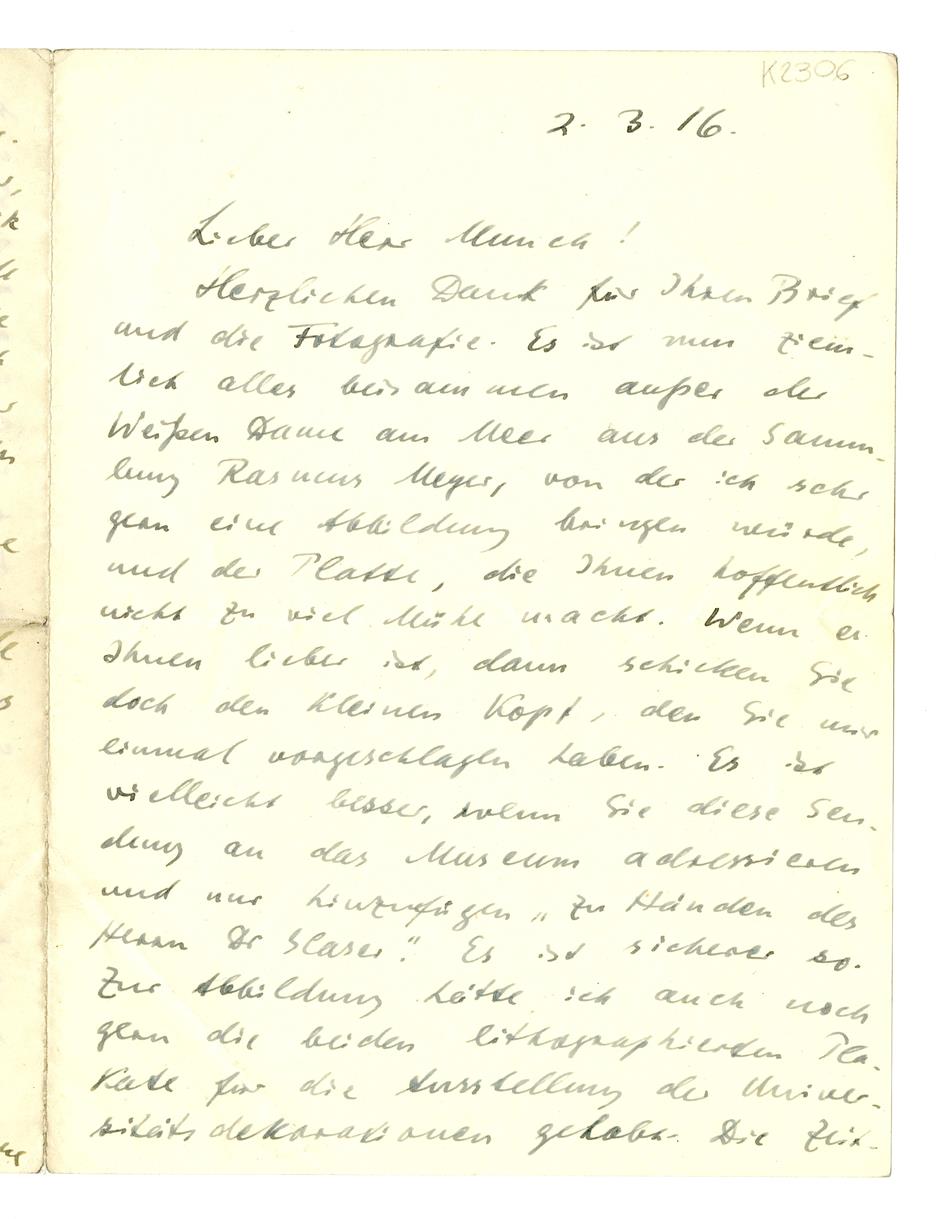 K2306
2. 3. 16.
Lieber Herr Munch!
Herzlichen Dank für Ihren Brief
und die Fotografie. Es ist nun ziem-
lich alles beisammen außer der
Weißen Dame am Meer aus der Samm-
lung Rasmus Meyer, von der ich sehr
gern eine Abbildung bringen würde,
und der Platte, die Ihnen hoffentlich
nicht zu viel Mühe macht. Wenn es
Ihnen lieber ist, dann schicken Sie
doch den kleinen Kopf, den Sie mir
einmal vorgeschlagen haben. Es ist
vielleicht besser, wenn Sie diese Sen-
dung an das Museum adressieren
und nur hinzufügen „Zu Händen des
Herrn Dr Glaser." Es ist sicherer so.
Zur Abbildung hätte ich auch noch
gern die beiden lithographierten Pla-
kate für die Ausstellung der Univer-
sitätsdekorationen gehabt. Die Zeit-